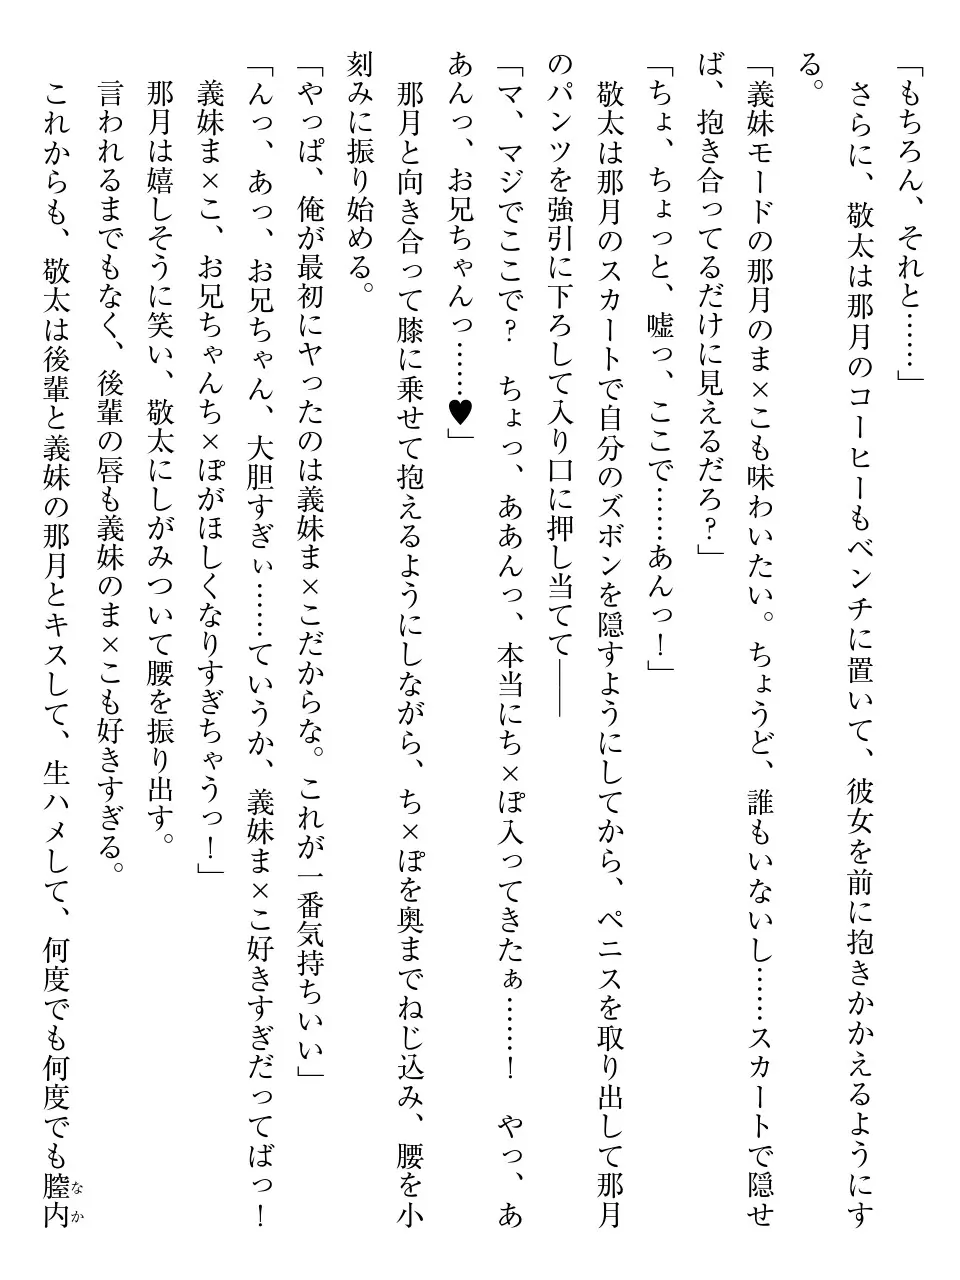 「もちろん、それと……」
さらに、敬太は那月のコーヒーもベンチに置いて、彼女を前に抱きかかえるようにす
る。
「義妹モードの那月のま×こも味わいたい。ちょうど、誰もいないし……スカートで隠せ
ば、抱き合ってるだけに見えるだろ?」
「ちょ、ちょっと、嘘っ、ここで……あんっ!」
敬太は那月のスカートで自分のズボンを隠すようにしてから、ペニスを取り出して那月
のパンツを強引に下ろして入り口に押し当てて――
「マ、マジでここで? ちょっ、ああんっ、本当にち×ぽ入ってきたぁ……! やっ、あ
あんっ、お兄ちゃんっ……♥」
那月と向き合って膝に乗せて抱えるようにしながら、ち×ぽを奥までねじ込み、腰を小
刻みに振り始める。
「やっぱ、俺が最初にヤったのは義妹ま×こだからな。これが一番気持ちいい」
「んっ、あっ、お兄ちゃん、大胆すぎぃ……ていうか、義妹ま×こ好きすぎだってばっ!
義妹ま×こ、お兄ちゃんち×ぽがほしくなりすぎちゃうっ!」
那月は嬉しそうに笑い、敬太にしがみついて腰を振り出す。
言われるまでもなく、後輩の唇も義妹のま×こも好きすぎる。
これからも、敬太は後輩と義妹の那月とキスして、生ハメして、何度でも何度でも膣内
なか